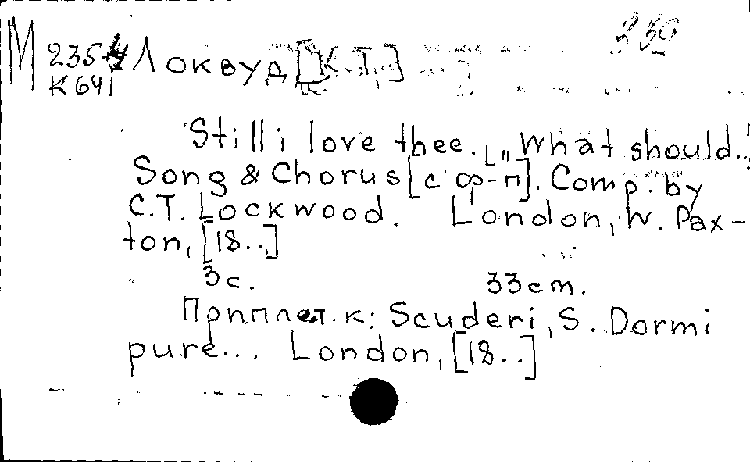 М 235 4 Локвуд [К.Т.]
К 641
Still i love thee. [„What should..
Song & Chorus [с ф-п]. Comp. by
C.T. Lockwood. London, W. Pax-
ton, [18..]
3с. 33cm.
Приплет. к: Scuderi, S. Dormi
pure... London, [18..]